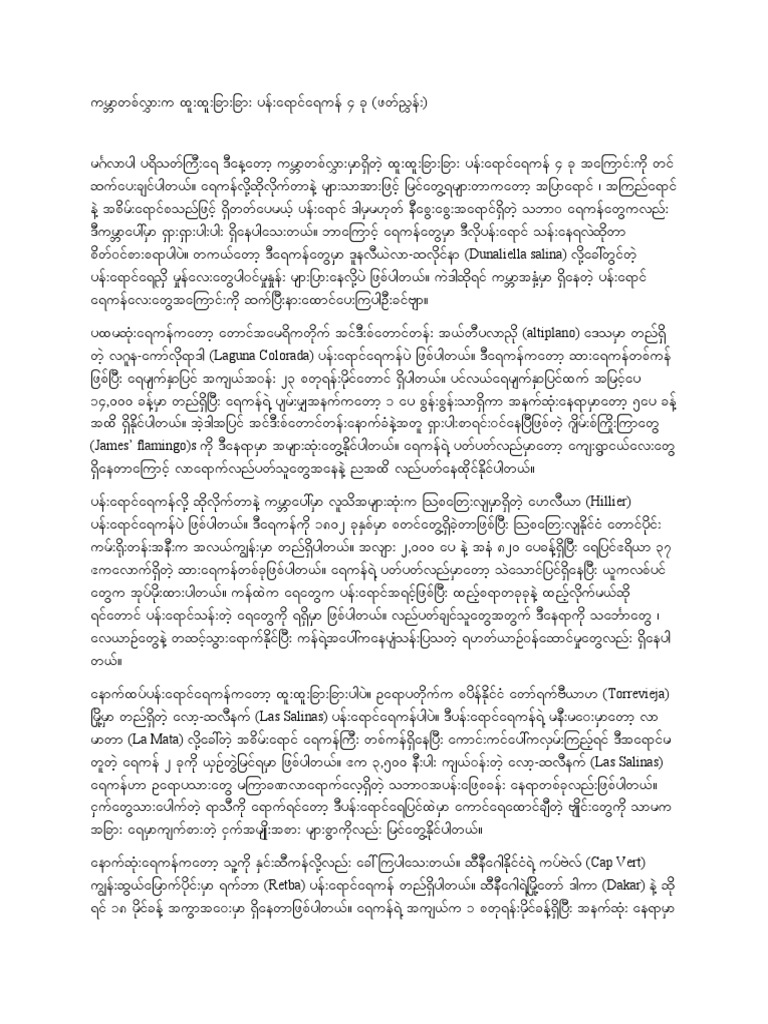 ကမ္ဘာတစ်လွှားက ထူးထူးခြားခြား ပန်းရောင်ရေကန် ၄ ခု (ဖတ်ညွှန်း)
မင်္ဂလာပါ ပရိသတ်ကြီးရေ ဒီနေ့တော့ ကမ္ဘာတစ်လွှားမှာရှိတဲ့ ထူးထူးခြားခြား ပန်းရောင်ရေကန် ၄ ခု အကြောင်းကို တင်
ဆက်ပေးချင်ပါတယ်။ ရေကန်လို့ဆိုလိုက်တာနဲ့ များသာအားဖြင့် မြင်တွေ့ရများတာကတော့ အပြာရောင် ၊ အကြည်ရောင်
နဲ့ အစိမ်းရောင်စသည်ဖြင့် ရှိတတ်ပေမယ့် ပန်းရောင် ဒါမှမဟုတ် နီစွေးစွေးအရောင်ရှိတဲ့ သဘာဝ ရေကန်တွေကလည်း
ဒီကမ္ဘာပေါ်မှာ ရှားရှားပါးပါး ရှိနေပါသေးတယ်။ ဘာကြောင့် ရေကန်တွေမှာ ဒီလိုပန်းရောင် သန်းနေရလဲဆိုတာ
စိတ်ဝင်စားစရာပါပဲ။ တကယ်တော့ ဒီရေကန်တွေမှာ ဒူနလီယဲလာ-ဆလိုင်နာ (Dunaliella salina) လို့ခေါ်တွင်တဲ့
ပန်းရောင်ရေညှိ မှုန်လေးတွေပါဝင်မှုနှုန်း များပြားနေလို့ပဲ ဖြစ်ပါတယ်။ ကဲဒါဆိုရင် ကမ္ဘာအနှံ့မှာ ရှိနေတဲ့ ပန်းရောင်
ရေကန်လေးတွေအကြောင်းကို ဆက်ပြီးနားထောင်ပေးကြပါဦးခင်ဗျာ။
ပထမဆုံးရေကန်ကတော့ တောင်အမေရိကတိုက် အင်ဒီးစ်တောင်တန်း အယ်တီပလာညို (altiplano) ဒေသမှာ တည်ရှိ
တဲ့ လဂူန-ကော်လိုရာဒါ (Laguna Colorada) ပန်းရောင်ရေကန်ပဲ ဖြစ်ပါတယ်။ ဒီရေကန်ကတော့ ဆားရေကန်တစ်ကန်
ဖြစ်ပြီး ရေမျက်နှာပြင် အကျယ်အဝန်း ၂၃ စတုရန်းမိုင်တောင် ရှိပါတယ်။ ပင်လယ်ရေမျက်နှာပြင်ထက် အမြင့်ပေ
၁၄,၀၀၀ ခန့်မှာ တည်ရှိပြီး ရေကန်ရဲ့ ပျမ်းမျှအနက်ကတော့ ၁ ပေ စွန်းစွန်းသာရှိကာ အနက်ဆုံးနေရာမှာတော့ ၅ပေ ခန့်
အထိ ရှိနိုင်ပါတယ်။ အဲ့ဒါအပြင် အင်ဒီးစ်တောင်တန်းနောက်ခံနဲ့အတူ ရှားပါးစာရင်းဝင်နေပြီဖြစ်တဲ့ ဂျိမ်းစ်ကြိုးကြာတွေ
(James’ flamingo)s ကို ဒီနေရာမှာ အများဆုံးတွေ့နိုင်ပါတယ်။ ရေကန်ရဲ့ ပတ်ပတ်လည်မှာတော့ ကျေးရွာငယ်လေးတွေ
ရှိနေတာကြောင့် လာရောက်လည်ပတ်သူတွေအနေနဲ့ ညအထိ လည်ပတ်နေထိုင်နိုင်ပါတယ်။
ပန်းရောင်ရေကန်လို့ ဆိုလိုက်တာနဲ့ ကမ္ဘာပေါ်မှာ လူသိအများဆုံးက ဩစတြေးလျမှာရှိတဲ့ ဟေလီယာ (Hillier)
ပန်းရောင်ရေကန်ပဲ ဖြစ်ပါတယ်။ ဒီရေကန်ကို ၁၈၀၂ ခုနှစ်မှာ စတင်တွေ့ရှိခဲ့တာဖြစ်ပြီး ဩစတြေးလျနိုင်ငံ တောင်ပိုင်း
ကမ်းရိုးတန်းအနီးက အလယ်ကျွန်းမှာ တည်ရှိပါတယ်။ အလျား ၂,၀၀၀ ပေ နဲ့ အနံ ၈၂၀ ပေခန့်ရှိပြီး ရေပြင်ဧရိယာ ၃၇
ဧကလောက်ရှိတဲ့ ဆားရေကန်တစ်ခုဖြစ်ပါတယ်။ ရေကန်ရဲ့ ပတ်ပတ်လည်မှာတော့ သဲသောင်ပြင်ရှိနေပြီး ယူကလစ်ပင်
တွေက အုပ်မိုးထားပါတယ်။ ကန်ထဲက ရေတွေက ပန်းရောင်အရင့်ဖြစ်ပြီး ထည့်စရာတခုခုနဲ့ ထည့်လိုက်မယ်ဆို
ရင်တောင် ပန်းရောင်သန်းတဲ့ ရေတွေကို ရရှိမှာ ဖြစ်ပါတယ်။ လည်ပတ်ချင်သူတွေအတွက် ဒီနေရာကို သင်္ဘောတွေ ၊
လေယာဉ်တွေနဲ့ တဆင့်သွားရောက်နိုင်ပြီး ကန်ရဲ့အပေါ်ကနေပျံသန်းပြသတဲ့ ရဟတ်ယာဉ်ဝန်ဆောင်မှုတွေလည်း ရှိနေပါ
တယ်။
နောက်ထပ်ပန်းရောင်ရေကန်ကတော့ ထူးထူးခြားခြားပါပဲ။ ဥရောပတိုက်က စပိန်နိုင်ငံ တော်ရက်ဗီယာဟ (Torrevieja)
မြို့မှာ တည်ရှိတဲ့ လော့-ဆလီနက် (Las Salinas) ပန်းရောင်ရေကန်ပါပဲ။ ဒီပန်းရောင်ရေကန်ရဲ့ မနီးမဝေးမှာတော့ လာ
မာတာ (La Mata) လို့ခေါ်တဲ့ အစိမ်းရောင် ရေကန်ကြီး တစ်ကန်ရှိနေပြီး ကောင်းကင်ပေါ်ကလှမ်းကြည့်ရင် ဒီအရောင်မ
တူတဲ့ ရေကန် ၂ ခုကို ယှဉ်တွဲမြင်ရမှာ ဖြစ်ပါတယ်။ ဧက ၃,၅၀၀ နီးပါး ကျယ်ဝန်းတဲ့ လော့-ဆလီနက် (Las Salinas)
ရေကန်ဟာ ဥရောပသားတွေ မကြာခဏလာရောက်လေ့ရှိတဲ့ သဘာဝအပန်းဖြေစခန်း နေရာတစ်ခုလည်းဖြစ်ပါတယ်။
ငှက်တွေသားပေါက်တဲ့ ရာသီကို ရောက်ရင်တော့ ဒီပန်းရောင်ရေပြင်ထဲမှာ ကောင်ရေထောင်ချီတဲ့ ဗျိုင်းတွေကို သာမက
အခြား ရေမှာကျက်စားတဲ့ ငှက်အမျိုးအစား များစွာကိုလည်း မြင်တွေ့နိုင်ပါတယ်။
နောက်ဆုံးရေကန်ကတော့ သူ့ကို နှင်းဆီကန်လို့လည်း ခေါ်ကြပါသေးတယ်။ ဆီနီဂေါနိုင်ငံရဲ့ ကပ်ဗဲလ် (Cap Vert)
ကျွန်းဆွယ်မြောက်ပိုင်းမှာ ရက်ဘာ (Retba) ပန်းရောင်ရေကန် တည်ရှိပါတယ်။ ဆီနီဂေါရဲ့မြို့တော် ဒါကာ (Dakar) နဲ့ ဆို
ရင် ၁၈ မိုင်ခန့် အကွာအဝေးမှာ ရှိနေတာဖြစ်ပါတယ်။ ရေကန်ရဲ့ အကျယ်က ၁ စတုရန်းမိုင်ခန့်ရှိပြီး အနက်ဆုံး နေရာမှာ